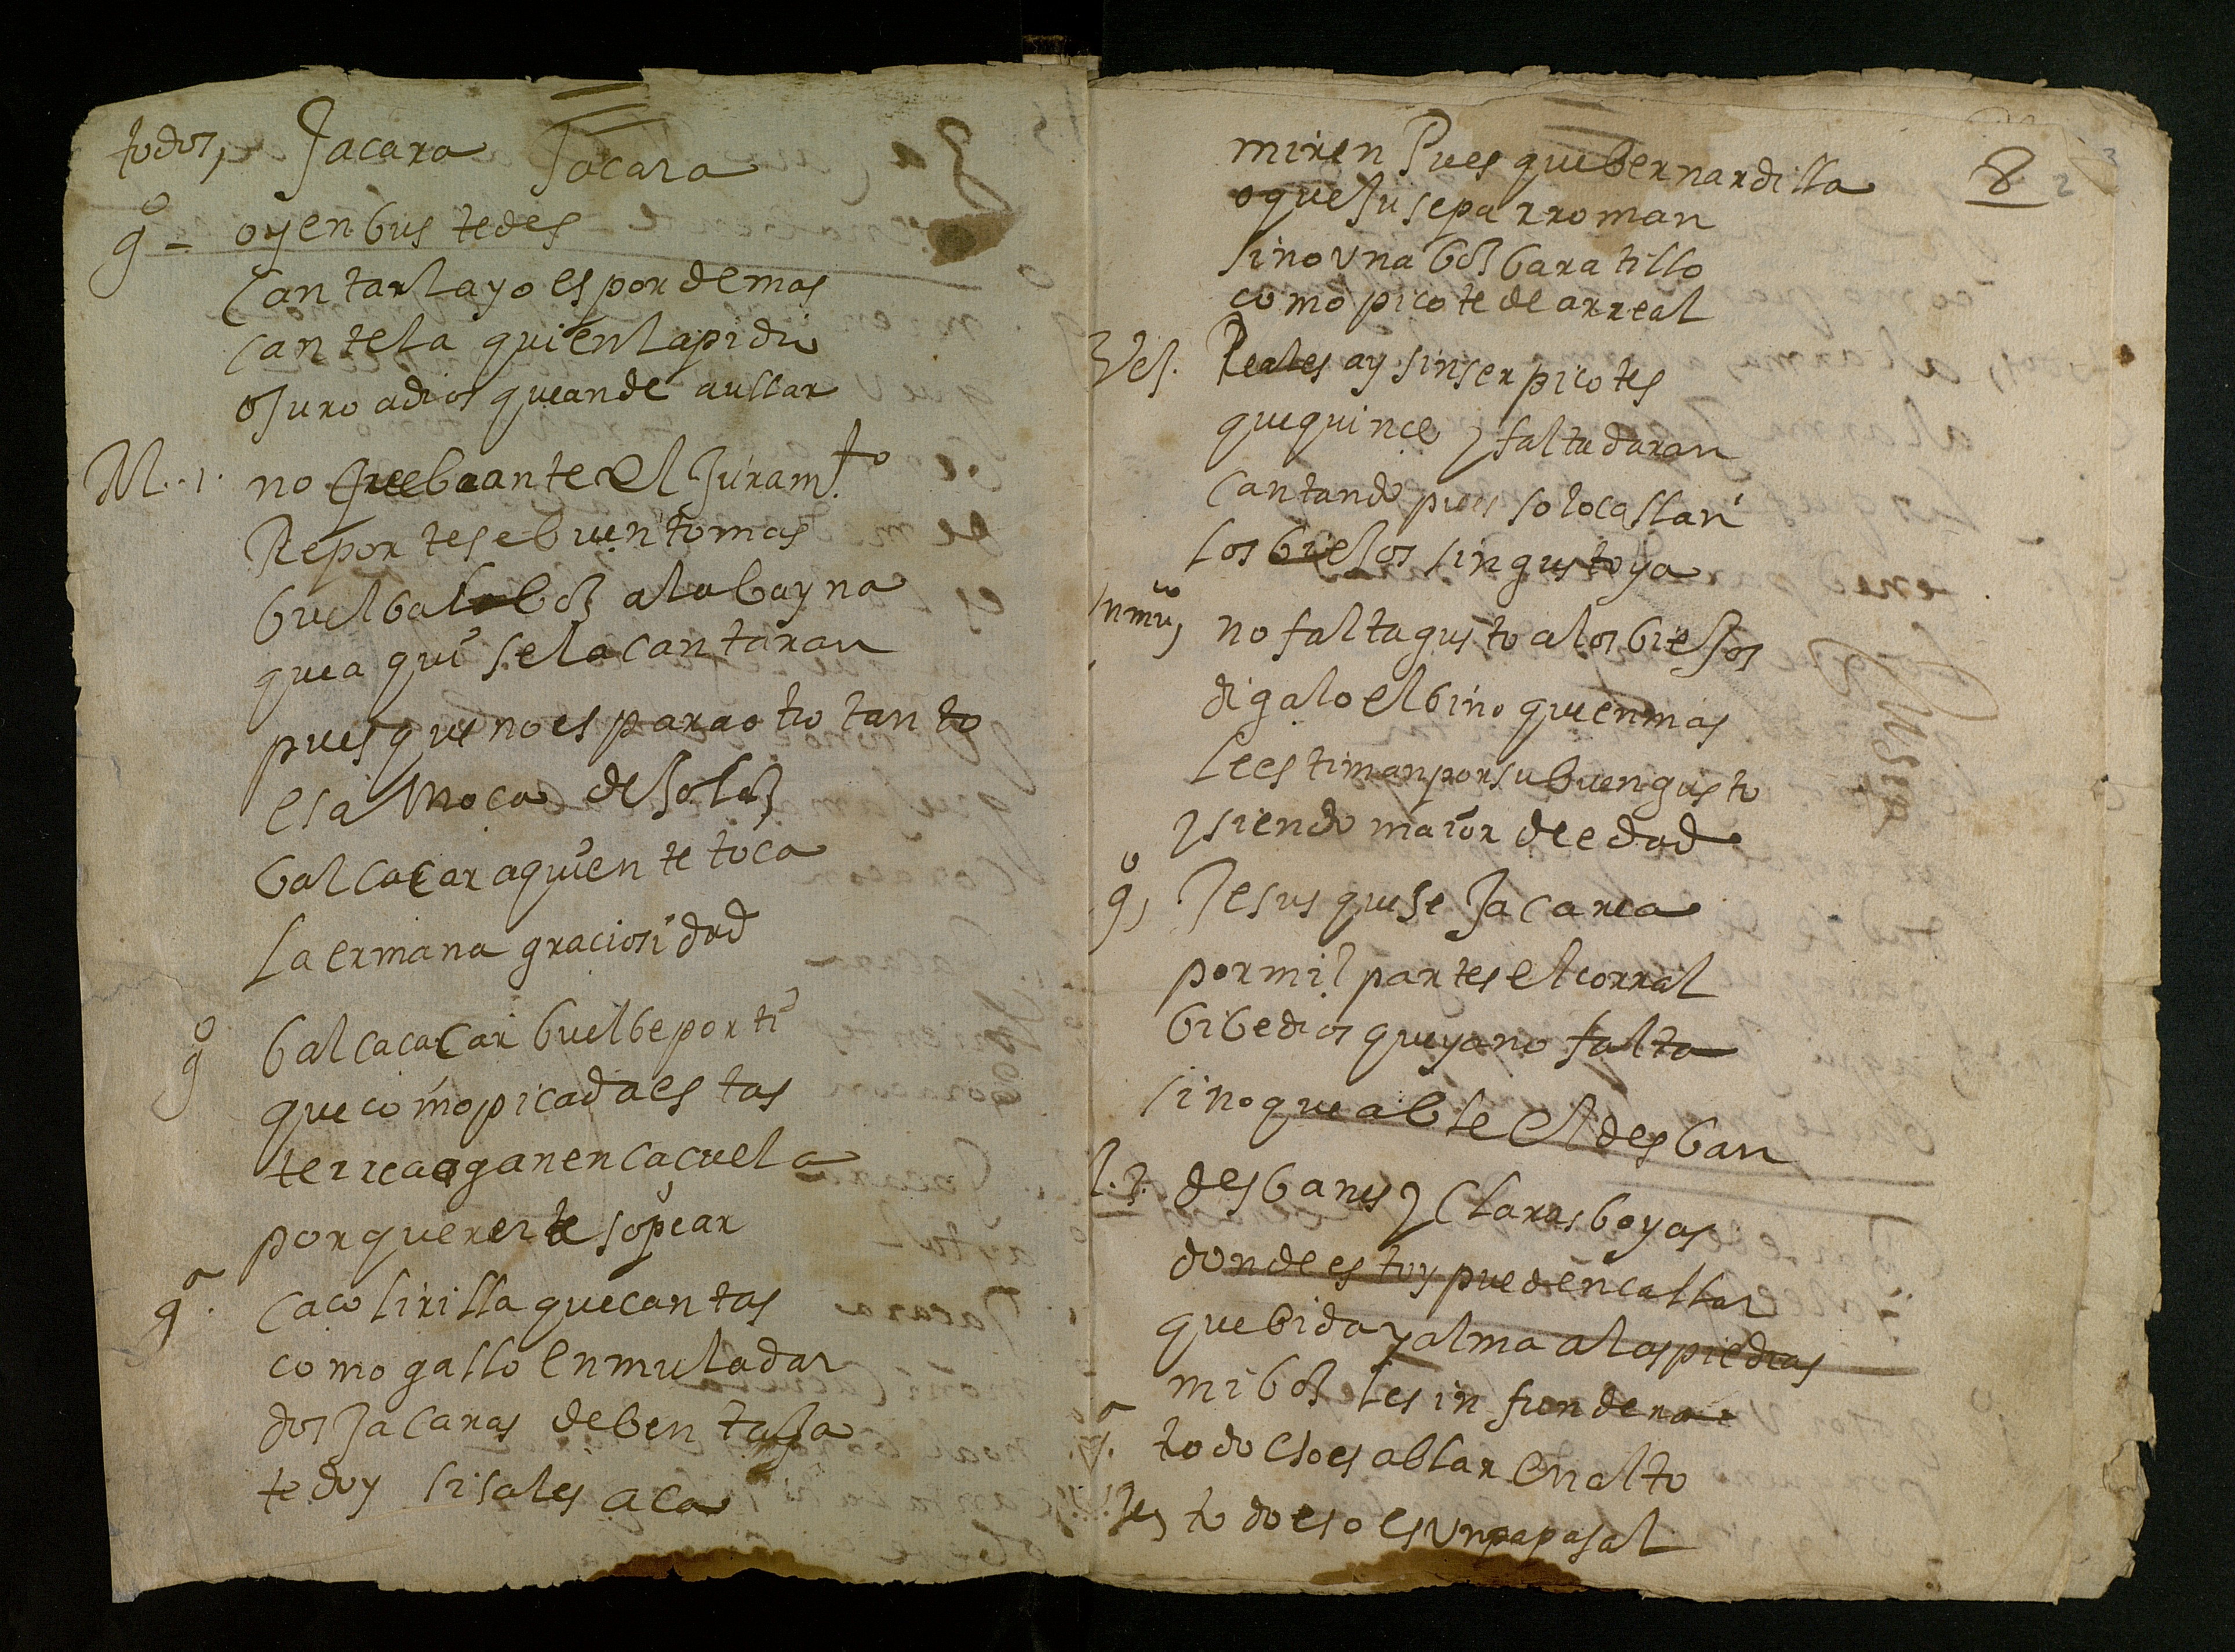 todos, Jacara Jacara
go - oyen bustedes
cantarla yo es por demas
cantela quien la pidio
o juro a dios que ande aullar
M. 1. no quebrante el juramto
Reportese buen tomas
buelba la boz a la bayna
que aqui se la cantaran
pues que no es para otro tanto
esa moca de solaz
balcacar a quien te toca
la ermana graciosidad
go balcacar buelbe por ti
que como picada estas
en cacuela
por quererte sopear
ga. cacolirilla que cantas
como gallo en muladar
dos jacaras de bentaja
te doy si sales aca
8
miren Pues que bernardilla
o que jusepa rroman
sino una boz baratillo
como picote de a rreal
Vej. Reales ay sin ser picotes
que quince y falta daran
cantando pues solo callan
los biejos sin gusto ya
no falta gusto a los biejos
digalo el bino quien mas
le estiman por su buen gusto
y siendo maior de edad
go, Jesus que se Jacarea
por mil partes el corral
bibe dios que ya no falta
sino que able el desban
desbanes y claras boyas
donde estoy pueden callar
que bida y alma a las piedras
mi boz les infundera
todo eso es ablar en alto
todo eso es un papasal